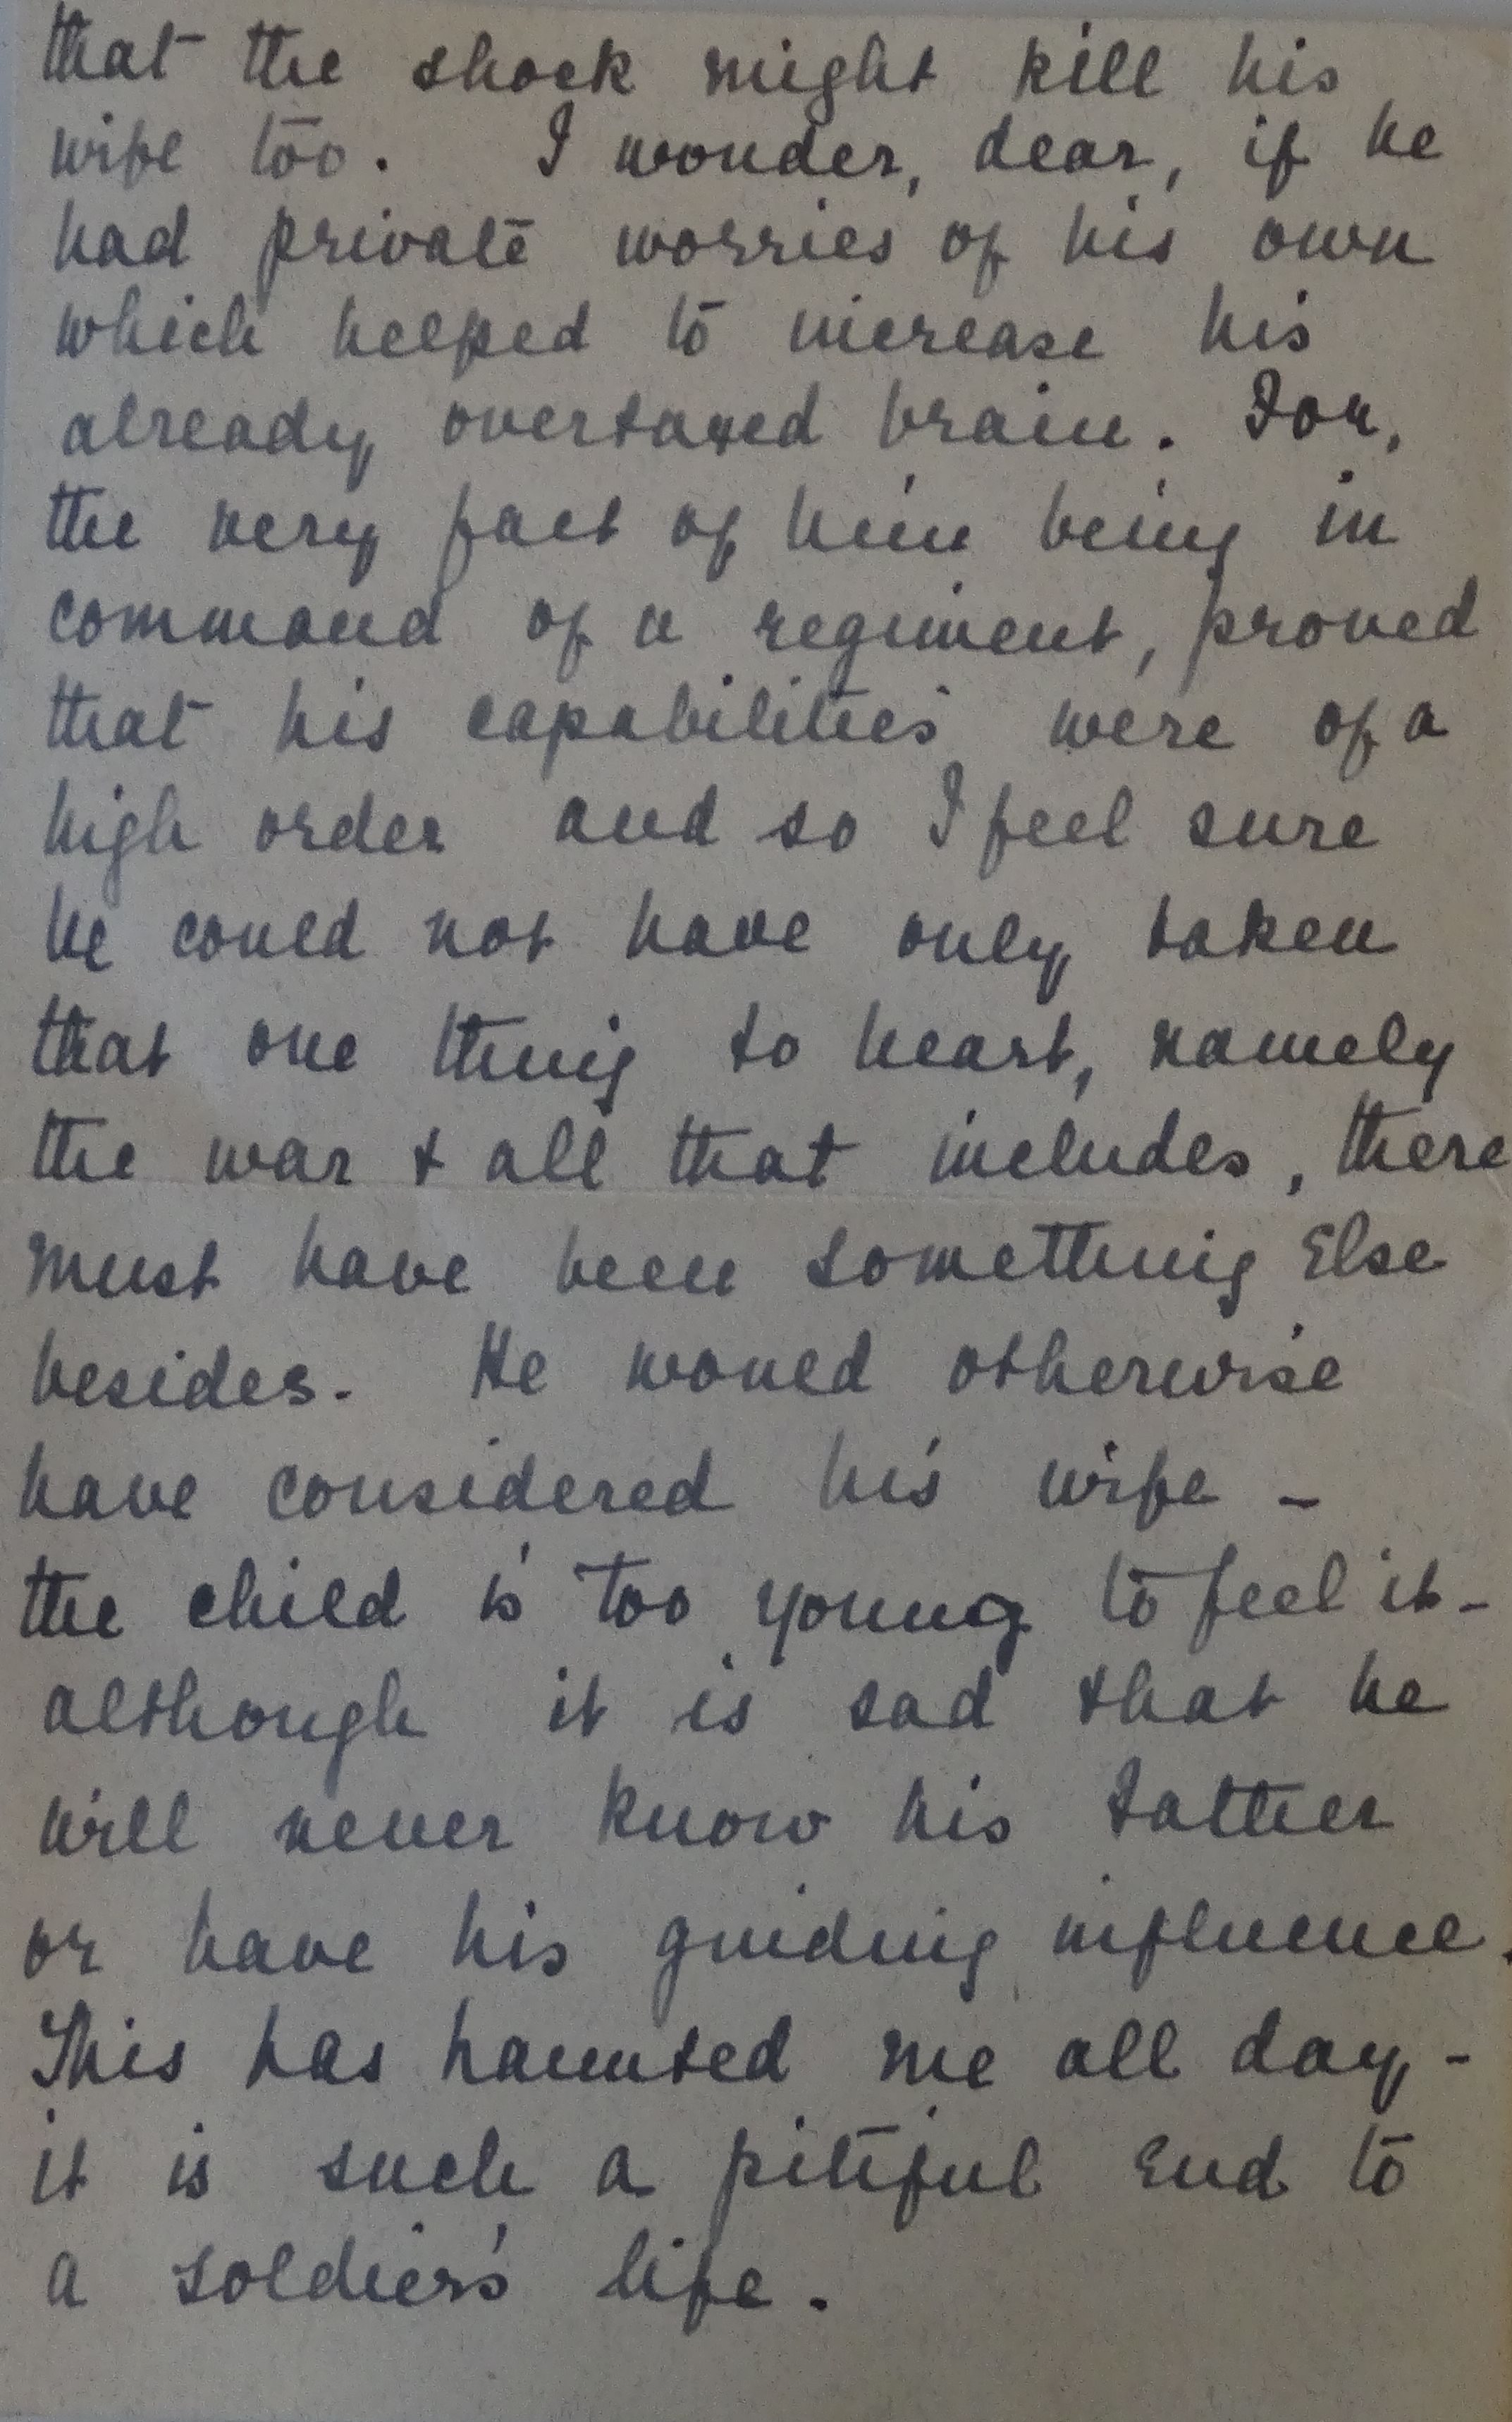 that the shock might kill his
wife too. I wonder, dear, if he
had private worries of his own
which helped to increase his
already overtaxed brain. For,
the very fact of him being in
command of a regiment, proved
that his capabilities were of a
high order and so I feel sure
he could not have only taken
that one thing to heart, namely
the war & all that includes, there
must have been something Else
besides. He would otherwise
have considered his wife -
the child is too young to feel it -
although it is sad that he
will never know his Father
or have his guiding influence.
This has haunted me all day -
it is such a pitiful End to
a soldier's life.